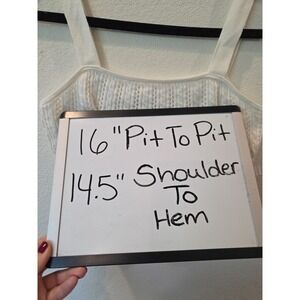 16" Pit To Pit
14.5" Shoulder
To
Hem